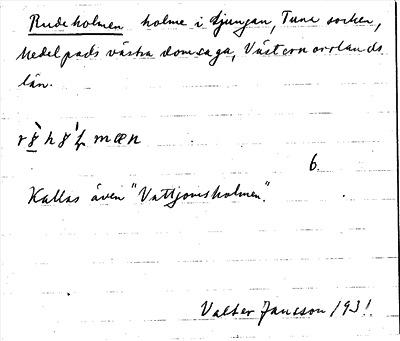 Rudeholmen holme i Ljungan, Tuna socken,
Medelpads västra domsaga, Västernorrlands
län.
6.
Kallas även "Vattjomsholmen".
Valter Jansson 193!.